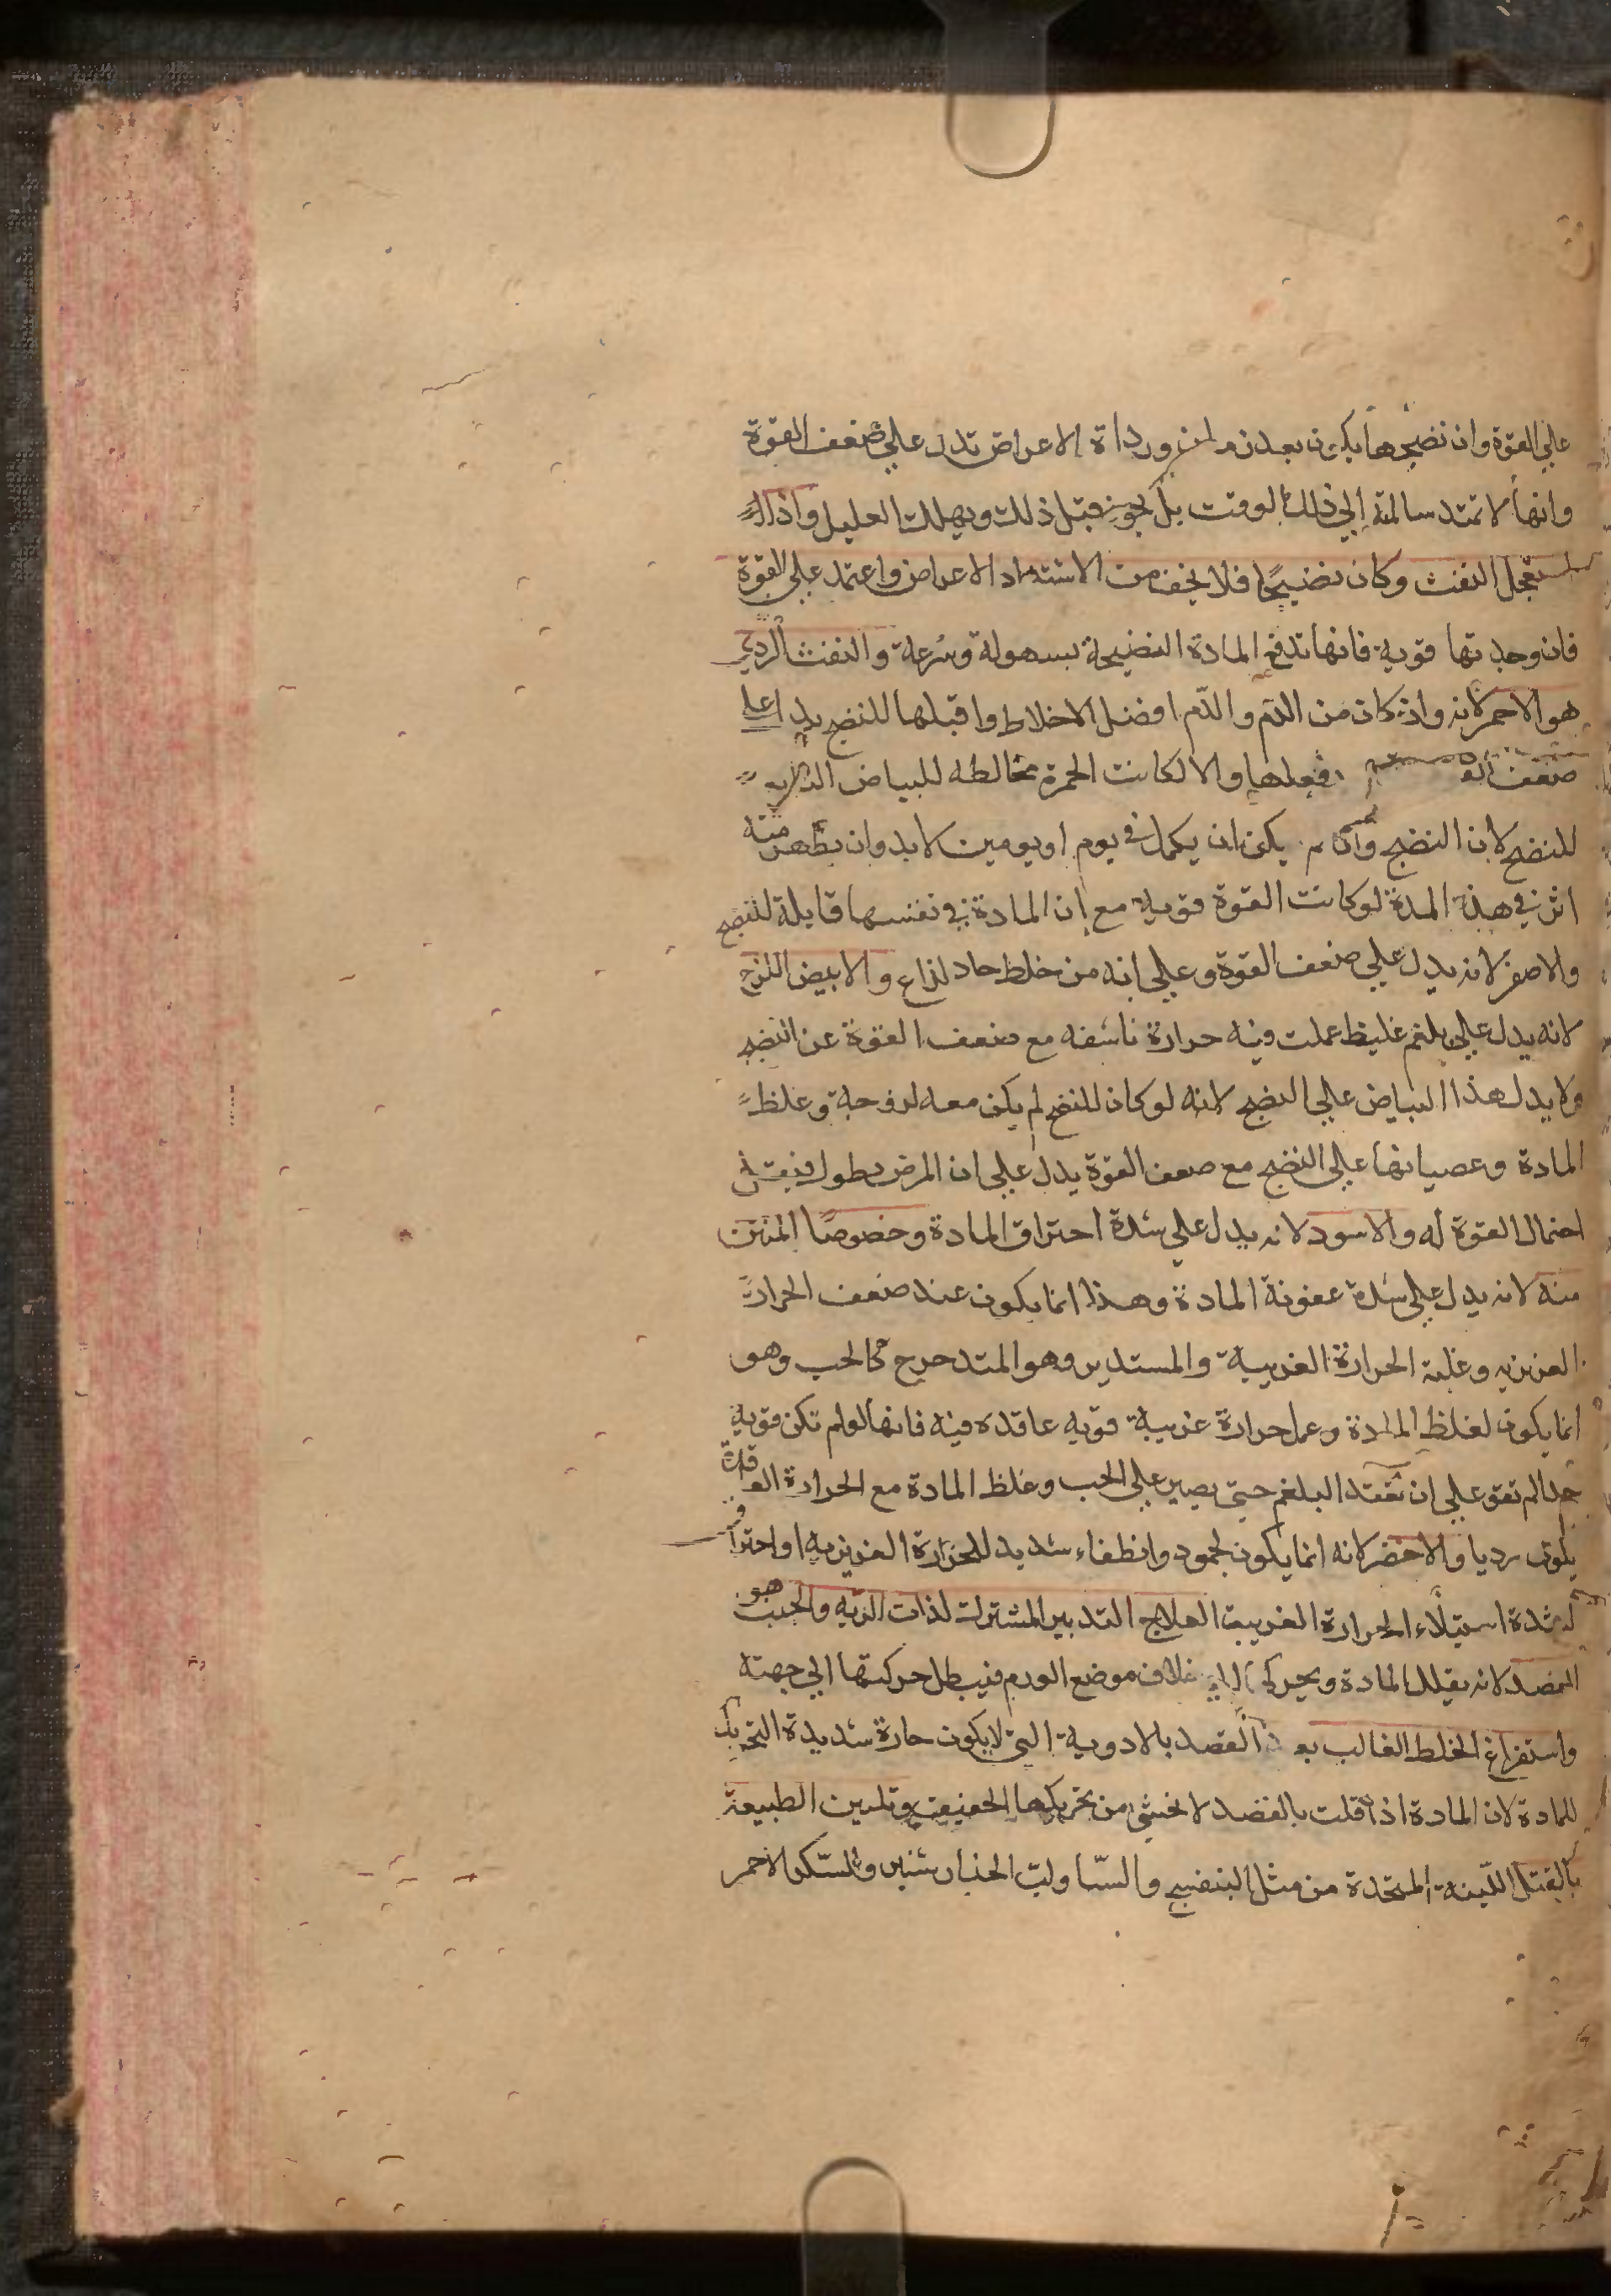 علي القوة وان نضجها يكون بعد زمان ورداة الاعراض تدل علي ضعف القوة
وانها لا تمتد سالمة الي ذلك الوقت بل يجوز قبل ذلك ويهلك العليل واذا
استعجل النفث وكان نضيجا فلا يخف من الاشتداد الاعراض واعتمد علي القوة
فان وجدتها قوية فانها تدفع المادة النضيجة بسهولة وسرعة والنفث الردي
هو الاحمر لانه وان كان من الدم والدم افضل الاخلاط واقبلها للنضج يدل علي
ضعف فعلها والا لكانت الحمرة مخالطه للبياض
للنضج لان النضج وان لم يكن ان يكمل في يوم او يومين لابد وان يظهر منه
اثر في هذه المدة لو كانت القوة قوية مع ان المادة في نفسها قابلة للنضج
والاصفر لانه يدل علي ضعف القوة وعلي انه من خلط حاد لذاع والابيض اللزج
لانه يدل علي بلغم غليظ عملت فيه حرارة ناشفه مع ضعف القوة عن النضج
ولا يدل هذا البياض علي النضج لانه لو كان للنضج لم يكن معه لزوجة وغلظ
المادة وعصيانها علي النضج مع ضعف القوة يدل علي ان المرض يطول
احتمال القوة له والاسود لانه يدل علي شدة احتراق المادة وخصوصا المنتن
منه لانه يدل علي شدة عفونة المادة وهذا انما يكون عند ضعف الحرارة
الغريزيه وغلبة الحرارة الغريبية والمستدير وهو المتدحرج كالحب وهو
انما يكون لغلظ المادة وعمل حرارة غريبية قويه عاقده فيه فانها لو لم تكن قوية
جدا لم تقو علي ان تعقد البلغم حتي يصير علي الحب وغلظ المادة مع الحرارة العاقدة
يكون رديا والاخضر لانه انما يكون لجمود وانطفاء شديد للحرارة الغريزيه او احتراق
لشدة استيلاء الحرارة الغريبية العلاج التدبير المشترك لذات الريه والجنب هو
الفصد لانه يقلل المادة ويحركها الي خلاف موضع الورم فيبطل حركتها الي جهته
واستفراغ الخلط الغالب بعد الفصد بالادوية التي لا يكون حارة شديدة التحريك
للمادة لان المادة اذا قلت بالفصد لا يخشي من تحريكها الخفيف وتليين الطبيعة
بالفتل اللينة المتخذة من مثل البنفسج والسنا ولب الخيار شنبر والسكر الاحمر